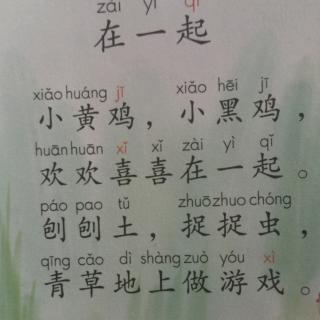 zài yì qǐ
在一起
xiǎo huáng jī xiǎo hēi jī
小黄鸡，小黑鸡，
huān huān xǐ xǐ zài yì qǐ
欢欢喜喜在一起。
páo pao tǔ zhuō zhuo chóng
刨刨土，捉捉虫，
qīng cǎo dì shàng zuò yóu xì
青草地上做游戏。